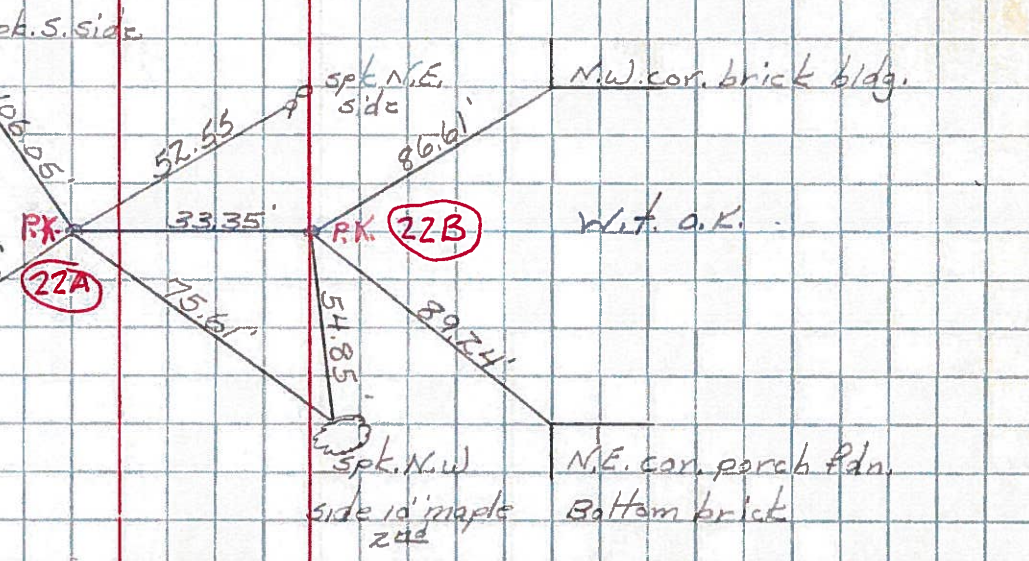 spk. S. side
spk. N.E.
side
N.W. cor. brick bldg.
06.05'
52.55
86.61'
P.K.
33.35'
P.K.
22B
W.t. o.k.
22A
75.61'
54.85'
89.24'
spk. N.W
side 10" maple
N.E. cor. porch fdn.
Bottom brick